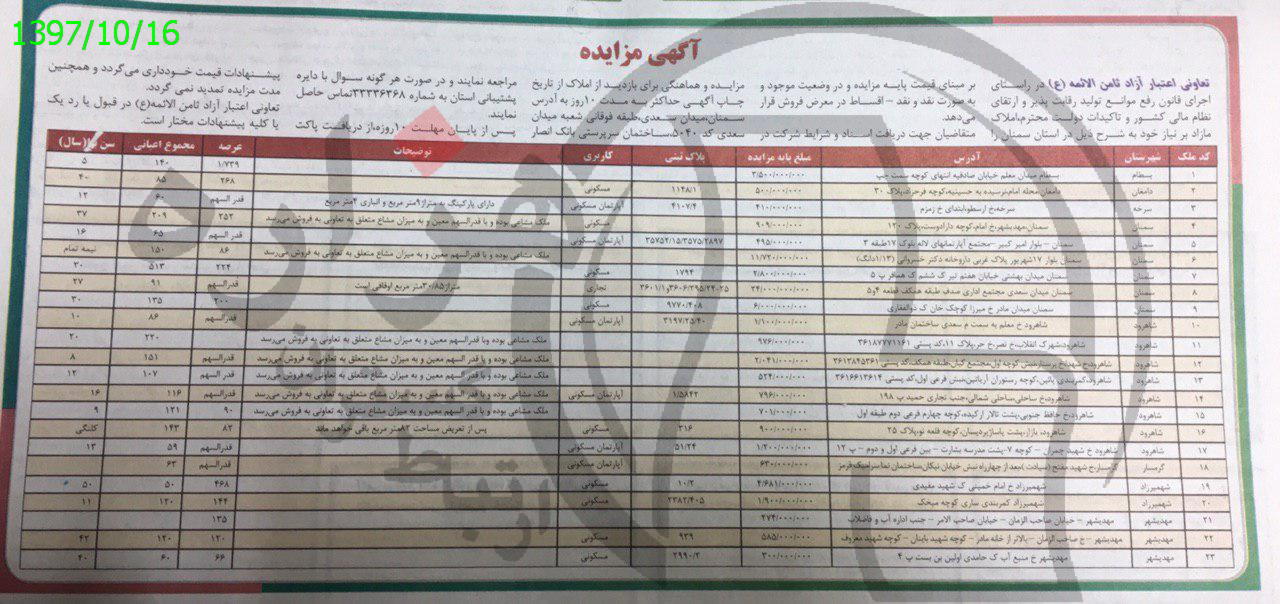 1397/10/16
آگهی مزایده
تعاونی اعتبار آزاد ثامن الائمه (ع) در راستای
اجرای قانون رفع موانع تولید رقابت پذیر و ارتقای
نظام مالی کشور و تاکیدات دولت محترم،املاک
مازاد بر نیاز خود به شرح ذیل در استان سمنان را
بر مبنای قیمت پایه مزایده و در وضعیت موجود و
به صورت نقد و نقد - اقساط در معرض فروش قرار
می‌دهد.
متقاضیان جهت دریافت اسناد و شرایط شرکت در
مزایده و هماهنگی برای بازدید از املاک از تاریخ
چاپ آگهی حداکثر به مدت ۱۰روز به آدرس
سمنان،میدان سعدی،طبقه فوقانی شعبه میدان
سعدی کد ۵۰۴۰،ساختمان سرپرستی بانک انصار
مراجعه نمایند و در صورت هر گونه سوال با دایره
پشتیبانی استان به شماره ۳۳۳۳۶۳۶۸تماس حاصل
نمایند.
پس از پایان مهلت ۱۰روزه،از دریافت پاکت
پیشنهادات قیمت خودداری می‌گردد و همچنین
مدت مزایده تمدید نمی گردد.
تعاونی اعتبار آزاد ثامن الائمه(ع) در قبول یا رد یک
یا کلیه پیشنهادات مختار است.
کد ملک شهرستان آدرس مبلغ پایه مزایده پلاک ثبتی کاربری توضیحات عرصه مجموع اعیانی سن بنا(سال)
۱ بسطام بسطام میدان معلم خیابان صادقیه انتهای کوچه سمت چپ ۳/۵۰۰/۰۰۰/۰۰۰ ۱/۷۳۹ ۱۴۰ ۵
۲ دامغان دامغان،محله امام،نرسیده به حسینیه،کوچه فرحزاد،پلاک ۳۰ ۵۰۰/۰۰۰/۰۰۰ ۱۱۴۸/۱ مسکونی ۲۶۸ ۸۵ ۴۰
۳ سرخه سرخه،خ ارسطو،ابتدای خ زمزم ۴۱۰/۰۰۰/۰۰۰ ۴۱۰۷/۴ آپارتمان مسکونی دارای پارکینگ به متراژ۹متر مربع و انباری ۴متر مربع قدر السهم ۶۰ ۱۲
۴ سمنان سمنان،مهدیشهر،خ امام،کوچه دارادوست،پلاک ۱۲۰ ۹۰۹/۰۰۰/۰۰۰ مسکونی ملک مشاعی بوده و با قدرالسهم معین و به میزان مشاع متعلق به تعاونی به فروش می‌رسد ۲۵۲ ۲۰۹ ۳۷
۵ سمنان سمنان – بلوار امیر کبیر –مجتمع آپارتمانهای لاله بلوک ۱۷طبقه ۳ ۴۹۵/۰۰۰/۰۰۰ ۳۵۷۵۲/۱۵/۳۵۷۵/۲۸۹۷ آپارتمان مسکونی قدر السهم ۶۵ ۱۶
۶ سمنان سمنان بلوار ۱۷شهریور پلاک غربی داروخانه دکتر خسروانی (۱/۱۳دانگ) ۱۱/۷۲۰/۰۰۰/۰۰۰ ملک مشاعی بوده و با قدرالسهم معین و به میزان مشاع متعلق به تعاونی به فروش می‌رسد ۸۶ ۱۵۰ نیمه تمام
۷ سمنان سمنان میدان بهشتی خیابان هفتم تیر ک ششم ک همافر پ ۵ ۲/۸۰۰/۰۰۰/۰۰۰ ۱۷۹۴ مسکونی ۲۲۴ ۵۱۳ ۳۰
۸ سمنان سمنان میدان سعدی مجتمع اداری صدف طبقه همکف قطعه ۴و۵ ۲۴/۰۰۰/۰۰۰/۰۰۰ تجاری متراژ۳۰/۸۵متر مربع اوقافی است قدرالسهم ۹۱ ۲۷
۹ سمنان سمنان میدان مادر خ میرزا کوچک خان ک ذوالفقاری ۶/۰۰۰/۰۰۰/۰۰۰ ۹۷۷۰/۴۰۸ مسکونی ۲۰۰ ۱۳۵ ۳۰
۱۰ شاهرود شاهرود خ معلم به سمت م سعدی ساختمان مادر ۱/۱۰۰/۰۰۰/۰۰۰ ۳۱۹۷/۲۵/۴۰ آپارتمان مسکونی قدرالسهم ۸۶ ۱۰
۱۱ شاهرود شاهرود،شهرک انقلاب،خ نصر،خ حر،پلاک ۱۱،کد پستی ۳۶۱۸۷۷۷۱۱۶۱ ۹۷۶/۰۰۰/۰۰۰ ملک مشاعی بوده وبا قدرالسهم معین و به میزان مشاع متعلق به تعاونی به فروش می‌رسد ۲۲۰ ۲۰
۱۲ شاهرود شاهرود،خ شهید،خ پرستار،نبش کوچه اول،مجتمع کیان،طبقه همکف،کد پستی ۳۶۱۳۸۴۵۳۶۱ ۲/۰۴۱/۰۰۰/۰۰۰ ملک مشاعی بوده و با قدرالسهم معین و به میزان مشاع متعلق به تعاونی به فروش می‌رسد قدرالسهم ۱۵۱ ۸
۱۳ شاهرود شاهرود،کمربندی پائین،کوچه رستوران آریائین،نبش فرعی اول،کد پستی ۳۶۱۶۶۱۳۶۱۴ ۵۲۴/۰۰۰/۰۰۰ ملک مشاعی بوده و با قدرالسهم معین و به میزان مشاع متعلق به تعاونی به فروش می‌رسد قدر السهم ۱۰۷ ۱۲
۱۴ شاهرود شاهرود،خ ساحلی،ساحلی شمالی،جنب تجاری حمید پ ۱۹۸ ۷۹۶/۰۰۰/۰۰۰ ۱/۵۸۴۲ آپارتمان مسکونی ملک مشاعی بوده و با قدر السهم معین و به میزان مشاع متعلق به تعاونی به فروش می‌رسد قدر السهم ۱۱۶ ۱۶
۱۵ شاهرود شاهرود،خ حافظ جنوبی،پشت تالار ارکیده،کوچه چهارم فرعی دوم طبقه اول ۷۰۱/۰۰۰/۰۰۰ ملک مشاعی بوده و با قدرالسهم معین و به میزان مشاع متعلق به تعاونی به فروش می‌رسد ۹۰ ۱۲۱ ۹
۱۶ شاهرود شاهرود، بازار،پشت پاساژپردیسان،کوچه قلعه نو،پلاک ۲۵ ۹۰۰/۰۰۰/۰۰۰ ۳۱۶ مسکونی پس از تعریض مساحت ۸۲متر مربع باقی خواهد ماند ۸۲ ۱۴۳ کلنگی
۱۷ شاهرود شاهرود خ شهید چمران – کوچه ۷–پشت مدرسه بشارت – بین فرعی اول و دوم – پ ۱۲ ۱/۲۰۰/۰۰۰/۰۰۰ ۵۱/۲۴ آپارتمان مسکونی قدرالسهم ۵۹ ۱۳
۱۸ گرمسار گرمسار،خ شهید مفتح (سیادت )،بعد از چهارراه نبش خیابان نیکان،ساختمان نما سرامیک قرمز ۶۳۰/۰۰۰/۰۰۰ آپارتمان مسکونی قدرالسهم ۶۳
۱۹ شهمیرزاد شهمیرزاد خ امام خمینی ک شهید مفیدی ۴/۶۸۱/۰۰۰/۰۰۰ ۱۰/۲ مسکونی ۴۶۸ ۵۰ ۵۰
۲۰ شهمیرزاد شهمیرزاد کمربندی ساری کوچه میخک ۱/۹۰۰/۰۰۰/۰۰۰ ۲۳۸۲/۴۰۵ مسکونی ۱۴۴ ۱۲۰ ۱۱
۲۱ مهدیشهر مهدیشهر – خیابان صاحب الزمان – خیابان صاحب الامر – جنب اداره آب و فاضلاب ۲۷۴/۰۰۰/۰۰۰ ۱۳۵
۲۲ مهدیشهر مهدیشهر –خ صاحب الزمان – بالاتر از خانه مادر – کوچه شهید بابنان – کوچه شهید معروف ۵۸۵/۰۰۰/۰۰۰ ۹۳۹ مسکونی ۱۲۰ ۱۲۰ ۴۲
۲۳ مهدیشهر مهدیشهر خ منبع آب ک حامدی اولین بن بست پ ۴ ۳۰۰/۰۰۰/۰۰۰ ۲۹۹۰/۲ مسکونی ۶۶ ۶۰ ۴۰